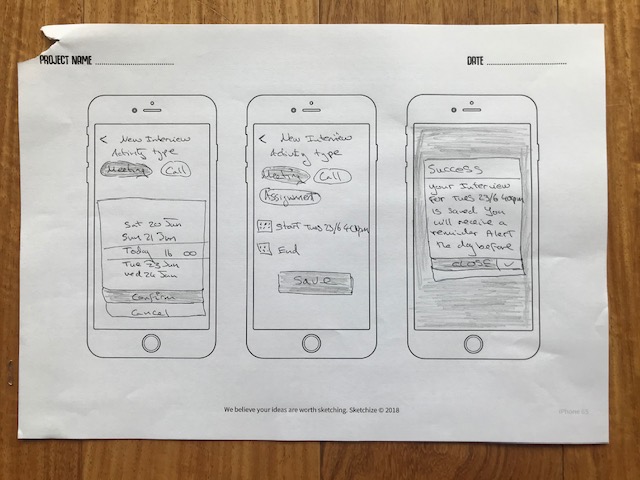 PROJECT NAME
DATE
< New Interview
Activity type
Meeting Call
Sat 20 Jun
Sun 21 Jun
Today 16 00
Tue 23 Jun
Wed 24 Jun
Confirm
Cancel
< New Interview
Activity type
Meeting Call
Assignment
Start Tues 23/6 400pm
End
Save
Success
Your Interview
for Tues 23/6 400pm
is saved. You
will receive a
reminder Alert
the day before
CLOSE
We believe your ideas are worth sketching. Sketchize © 2018